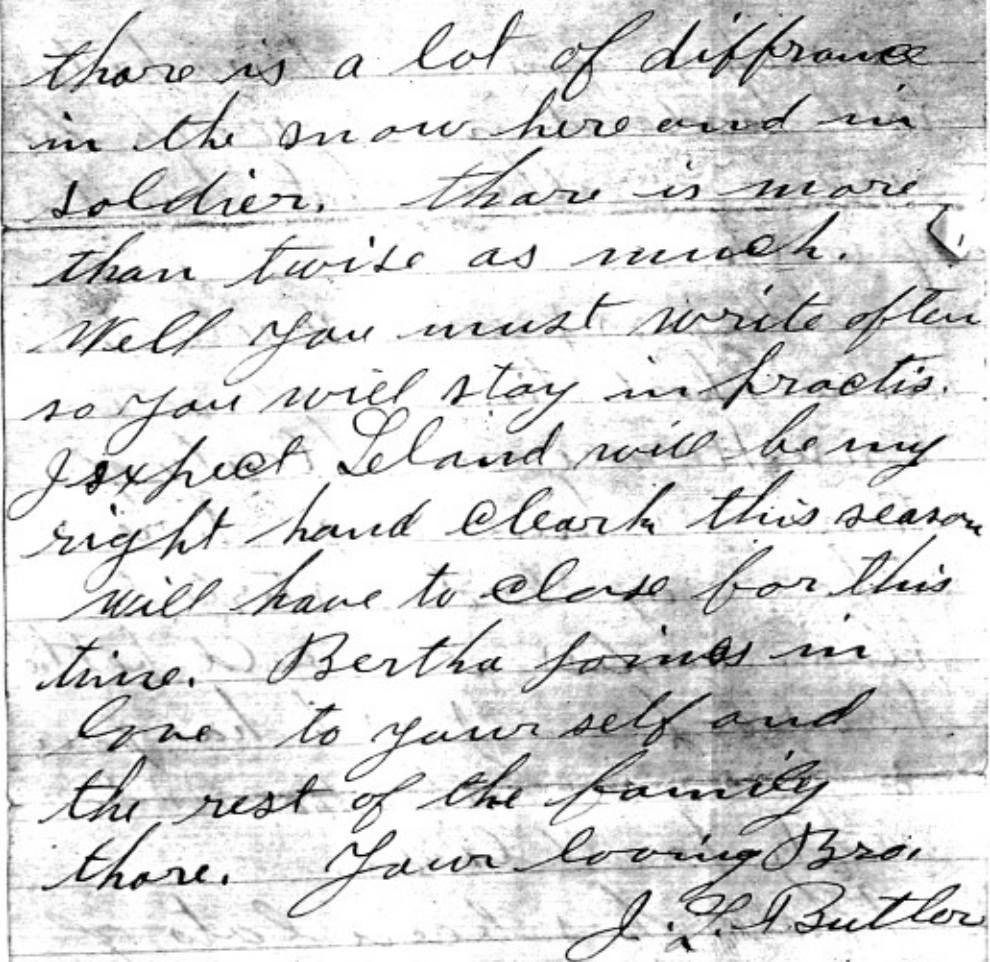 thare is a lot of diffrance
in the snow here and in
soldier. thare is more
than twise as much.
Well you must write often
so you will stay in practis.
I expect Leland will be my
right hand cleark this season
will have to close for this
time. Bertha joines in
love to your self and
the rest of the family
thare. Your loving Bro.
J. L. Butler